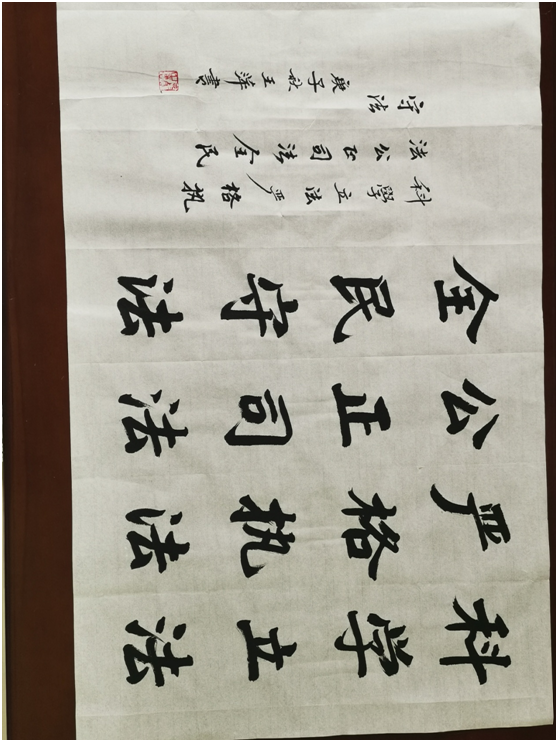 科学立法
严格执法
公正司法
全民守法
科學立法严格执
法公正司法全民
守法
庚子秋王萍書